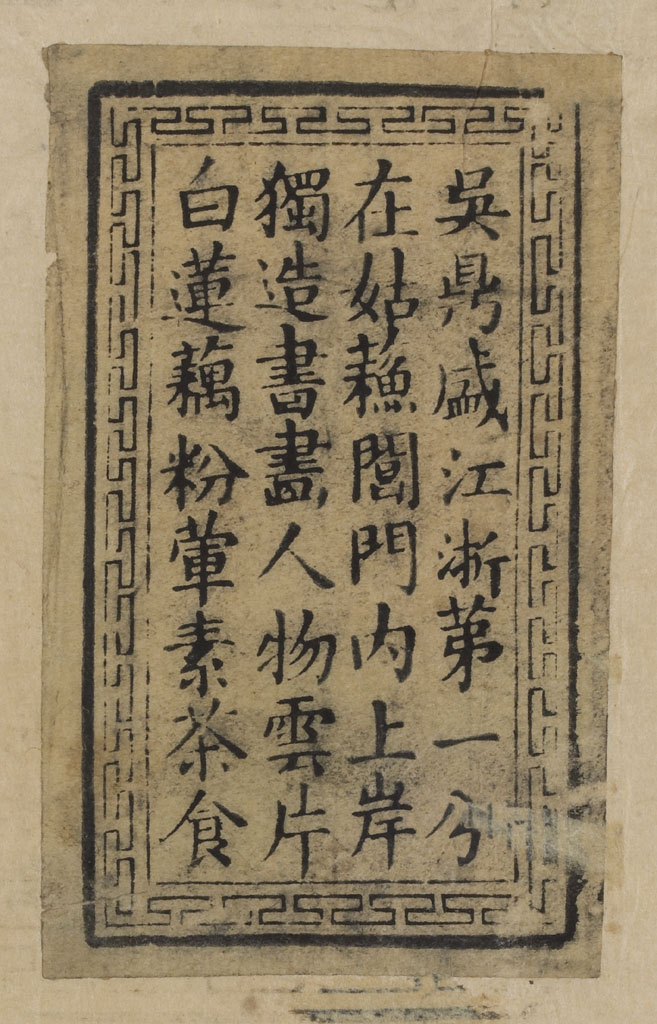 吳鼎盛江浙第一分
在姑蘓閶門内上岸
獨造書畫人物雲片
白蓮藕粉葷素茶食